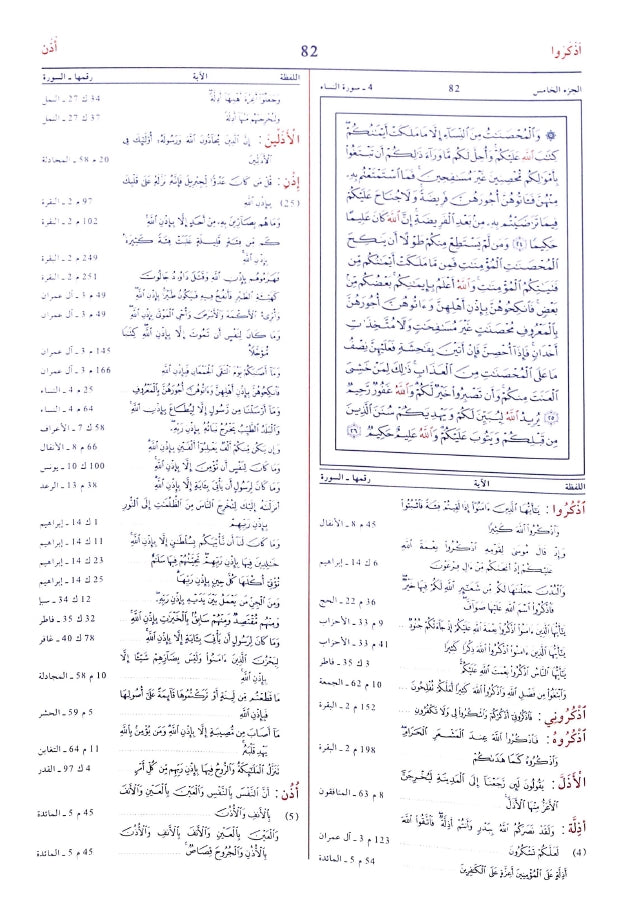 اذْكَرُوا
82
أُذُن
الجزء الخامس
82
4 ـ سورة النساء
۞ وَالْمُحْصَنَٰتُ مِنَ النِّسَآءِ إِلَّا مَا مَلَكَتْ أَيْمَٰنُكُمْ
كِتَٰبَ اللَّهِ عَلَيْكُمْ وَأُحِلَّ لَكُم مَّا وَرَآءَ ذَٰلِكُمْ أَن تَبْتَغُوا
بِأَمْوَٰلِكُم مُّحْصِنِينَ غَيْرَ مُسَٰفِحِينَ فَمَا اسْتَمْتَعْتُم بِهِۦ
مِنْهُنَّ فَـَٔاتُوهُنَّ أُجُورَهُنَّ فَرِيضَةً وَلَا جُنَاحَ عَلَيْكُمْ
فِيمَا تَرَٰضَيْتُم بِهِۦ مِنۢ بَعْدِ الْفَرِيضَةِ إِنَّ اللَّهَ كَانَ عَلِيمًا
حَكِيمًا ﴿٢٤﴾ وَمَن لَّمْ يَسْتَطِعْ مِنكُمْ طَوْلًا أَن يَنكِحَ
الْمُحْصَنَٰتِ الْمُؤْمِنَٰتِ فَمِن مَّا مَلَكَتْ أَيْمَٰنُكُم مِّن
فَتَيَٰتِكُمُ الْمُؤْمِنَٰتِ وَاللَّهُ أَعْلَمُ بِإِيمَٰنِكُم بَعْضُكُم مِّنۢ
بَعْضٍ فَانكِحُوهُنَّ بِإِذْنِ أَهْلِهِنَّ وَءَاتُوهُنَّ أُجُورَهُنَّ
بِالْمَعْرُوفِ مُحْصَنَٰتٍ غَيْرَ مُسَٰفِحَٰتٍ وَلَا مُتَّخِذَٰتِ
أَخْدَانٍ فَإِذَآ أُحْصِنَّ فَإِنْ أَتَيْنَ بِفَٰحِشَةٍ فَعَلَيْهِنَّ نِصْفُ
مَا عَلَى الْمُحْصَنَٰتِ مِنَ الْعَذَابِ ذَٰلِكَ لِمَنْ خَشِىَ
الْعَنَتَ مِنكُمْ وَأَن تَصْبِرُوا خَيْرٌ لَّكُمْ وَاللَّهُ غَفُورٌ رَّحِيمٌ
﴿٢٥﴾ يُرِيدُ اللَّهُ لِيُبَيِّنَ لَكُمْ وَيَهْدِيَكُمْ سُنَنَ الَّذِينَ
مِن قَبْلِكُمْ وَيَتُوبَ عَلَيْكُمْ وَاللَّهُ عَلِيمٌ حَكِيمٌ ﴿٢٦﴾
اللفظة الآية رقمها ـ السورة
اذْكُرُوا : يَٰٓأَيُّهَا الَّذِينَ ءَامَنُوٓا إِذَا لَقِيتُمْ فِئَةً فَاثْبُتُوا
وَاذْكُرُوا اللَّهَ كَثِيرًا 45 م 8 ـ الأنفال
وَإِذْ قَالَ مُوسَىٰ لِقَوْمِهِ اذْكُرُوا نِعْمَةَ اللَّهِ
عَلَيْكُمْ إِذْ أَنجَىٰكُم مِّنْ ءَالِ فِرْعَوْنَ 6 ك 14 ـ إبراهيم
وَالْبُدْنَ جَعَلْنَٰهَا لَكُم مِّن شَعَٰٓئِرِ اللَّهِ لَكُمْ فِيهَا خَيْرٌ
فَاذْكُرُوا اسْمَ اللَّهِ عَلَيْهَا صَوَآفَّ 36 م 22 ـ الحج
يَٰٓأَيُّهَا الَّذِينَ ءَامَنُوا اذْكُرُوا نِعْمَةَ اللَّهِ عَلَيْكُمْ إِذْ جَآءَتْكُمْ جُنُودٌ 9 م 33 ـ الأحزاب
يَٰٓأَيُّهَا الَّذِينَ ءَامَنُوا اذْكُرُوا اللَّهَ ذِكْرًا كَثِيرًا 41 م 33 ـ الأحزاب
يَٰٓأَيُّهَا النَّاسُ اذْكُرُوا نِعْمَتَ اللَّهِ عَلَيْكُمْ 3 ك 35 ـ فاطر
وَابْتَغُوا مِن فَضْلِ اللَّهِ وَاذْكُرُوا اللَّهَ كَثِيرًا لَّعَلَّكُمْ تُفْلِحُونَ 10 م 62 ـ الجمعة
اذْكُرُونِي : فَاذْكُرُونِىٓ أَذْكُرْكُمْ وَاشْكُرُوا لِى وَلَا تَكْفُرُونِ 152 م 2 ـ البقرة
اذْكُرُوهُ : فَاذْكُرُوا اللَّهَ عِندَ الْمَشْعَرِ الْحَرَامِ
وَاذْكُرُوهُ كَمَا هَدَىٰكُمْ 198 م 2 ـ البقرة
الأَذَلَّ : يَقُولُونَ لَئِن رَّجَعْنَآ إِلَى الْمَدِينَةِ لَيُخْرِجَنَّ
الْأَعَزُّ مِنْهَا الْأَذَلَّ 8 م 63 ـ المنافقون
أَذِلَّة : وَلَقَدْ نَصَرَكُمُ اللَّهُ بِبَدْرٍ وَأَنتُمْ أَذِلَّةٌ فَاتَّقُوا اللَّهَ
(4) لَعَلَّكُمْ تَشْكُرُونَ 123 م 3 ـ آل عمران
أَذِلَّةٍ عَلَى الْمُؤْمِنِينَ أَعِزَّةٍ عَلَى الْكَٰفِرِينَ 54 م 5 ـ المائدة
اللفظة الآية رقمها ـ السورة
وَجَعَلُوٓا أَعِزَّةَ أَهْلِهَآ أَذِلَّةً 34 ك 27 ـ النمل
وَلَنُخْرِجَنَّهُم مِّنْهَآ أَذِلَّةً 37 ك 27 ـ النمل
الأَذَلِّينَ : إِنَّ الَّذِينَ يُحَآدُّونَ اللَّهَ وَرَسُولَهُۥٓ أُولَٰٓئِكَ فِى
الْأَذَلِّينَ 20 م 58 ـ المجادلة
إِذْن : قُلْ مَن كَانَ عَدُوًّا لِّجِبْرِيلَ فَإِنَّهُۥ نَزَّلَهُۥ عَلَىٰ قَلْبِكَ
(25) بِإِذْنِ اللَّهِ 97 م 2 ـ البقرة
وَمَا هُم بِضَآرِّينَ بِهِۦ مِنْ أَحَدٍ إِلَّا بِإِذْنِ اللَّهِ 102 م 2 ـ البقرة
كَم مِّن فِئَةٍ قَلِيلَةٍ غَلَبَتْ فِئَةً كَثِيرَةًۢ
بِإِذْنِ اللَّهِ 249 م 2 ـ البقرة
فَهَزَمُوهُم بِإِذْنِ اللَّهِ وَقَتَلَ دَاوُۥدُ جَالُوتَ 251 م 2 ـ البقرة
كَهَيْـَٔةِ الطَّيْرِ فَأَنفُخُ فِيهِ فَيَكُونُ طَيْرًۢا بِإِذْنِ اللَّهِ 49 م 3 ـ آل عمران
وَأُبْرِئُ الْأَكْمَهَ وَالْأَبْرَصَ وَأُحْىِ الْمَوْتَىٰ بِإِذْنِ اللَّهِ 49 م 3 ـ آل عمران
وَمَا كَانَ لِنَفْسٍ أَن تَمُوتَ إِلَّا بِإِذْنِ اللَّهِ كِتَٰبًا
مُّؤَجَّلًا 145 م 3 ـ آل عمران
وَمَآ أَصَٰبَكُمْ يَوْمَ الْتَقَى الْجَمْعَانِ فَبِإِذْنِ اللَّهِ 166 م 3 ـ آل عمران
فَانكِحُوهُنَّ بِإِذْنِ أَهْلِهِنَّ وَءَاتُوهُنَّ أُجُورَهُنَّ بِالْمَعْرُوفِ 25 م 4 ـ النساء
وَمَآ أَرْسَلْنَا مِن رَّسُولٍ إِلَّا لِيُطَاعَ بِإِذْنِ اللَّهِ 64 م 4 ـ النساء
وَالْبَلَدُ الطَّيِّبُ يَخْرُجُ نَبَاتُهُۥ بِإِذْنِ رَبِّهِۦ 58 ك 7 ـ الأعراف
وَإِن يَكُن مِّنكُمْ أَلْفٌ يَغْلِبُوٓا أَلْفَيْنِ بِإِذْنِ اللَّهِ 66 م 8 ـ الأنفال
وَمَا كَانَ لِنَفْسٍ أَن تُؤْمِنَ إِلَّا بِإِذْنِ اللَّهِ 100 ك 10 ـ يونس
وَمَا كَانَ لِرَسُولٍ أَن يَأْتِىَ بِـَٔايَةٍ إِلَّا بِإِذْنِ اللَّهِ 38 م 13 ـ الرعد
أَنزَلْنَٰهُ إِلَيْكَ لِتُخْرِجَ النَّاسَ مِنَ الظُّلُمَٰتِ إِلَى النُّورِ
بِإِذْنِ رَبِّهِمْ 1 ك 14 ـ إبراهيم
وَمَا كَانَ لَنَآ أَن نَّأْتِيَكُم بِسُلْطَٰنٍ إِلَّا بِإِذْنِ اللَّهِ 11 ك 14 ـ إبراهيم
خَٰلِدِينَ فِيهَا بِإِذْنِ رَبِّهِمْ تَحِيَّتُهُمْ فِيهَا سَلَٰمٌ 23 ك 14 ـ إبراهيم
تُؤْتِىٓ أُكُلَهَا كُلَّ حِينٍۭ بِإِذْنِ رَبِّهَا 25 ك 14 ـ إبراهيم
وَمِنَ الْجِنِّ مَن يَعْمَلُ بَيْنَ يَدَيْهِ بِإِذْنِ رَبِّهِۦ 12 ك 34 ـ سبا
وَمِنْهُم مُّقْتَصِدٌ وَمِنْهُمْ سَابِقٌۢ بِالْخَيْرَٰتِ بِإِذْنِ اللَّهِ 32 ك 35 ـ فاطر
وَمَا كَانَ لِرَسُولٍ أَن يَأْتِىَ بِـَٔايَةٍ إِلَّا بِإِذْنِ اللَّهِ 78 ك 40 ـ غافر
لِيَحْزُنَ الَّذِينَ ءَامَنُوا وَلَيْسَ بِضَآرِّهِمْ شَيْـًٔا إِلَّا
بِإِذْنِ اللَّهِ 10 م 58 ـ المجادلة
مَا قَطَعْتُم مِّن لِّينَةٍ أَوْ تَرَكْتُمُوهَا قَآئِمَةً عَلَىٰٓ أُصُولِهَا
فَبِإِذْنِ اللَّهِ 5 م 59 ـ الحشر
مَآ أَصَابَ مِن مُّصِيبَةٍ إِلَّا بِإِذْنِ اللَّهِ وَمَن يُؤْمِنۢ بِاللَّهِ
يَهْدِ قَلْبَهُ 11 م 64 ـ التغابن
تَنَزَّلُ الْمَلَٰٓئِكَةُ وَالرُّوحُ فِيهَا بِإِذْنِ رَبِّهِم مِّن كُلِّ أَمْرٍ 4 ك 97 ـ القدر
أُذُن : أَنَّ النَّفْسَ بِالنَّفْسِ وَالْعَيْنَ بِالْعَيْنِ وَالْأَنفَ
(5) بِالْأَنفِ وَالْأُذُنَ 45 م 5 ـ المائدة
وَالْعَيْنَ بِالْعَيْنِ وَالْأَنفَ بِالْأَنفِ وَالْأُذُنَ
بِالْأُذُنِ وَالْجُرُوحَ قِصَاصٌ 45 م 5 ـ المائدة